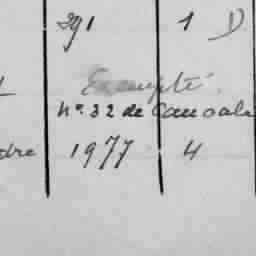 291 1 D
Exempté
N° 32 de Cancale
dre 1977 4